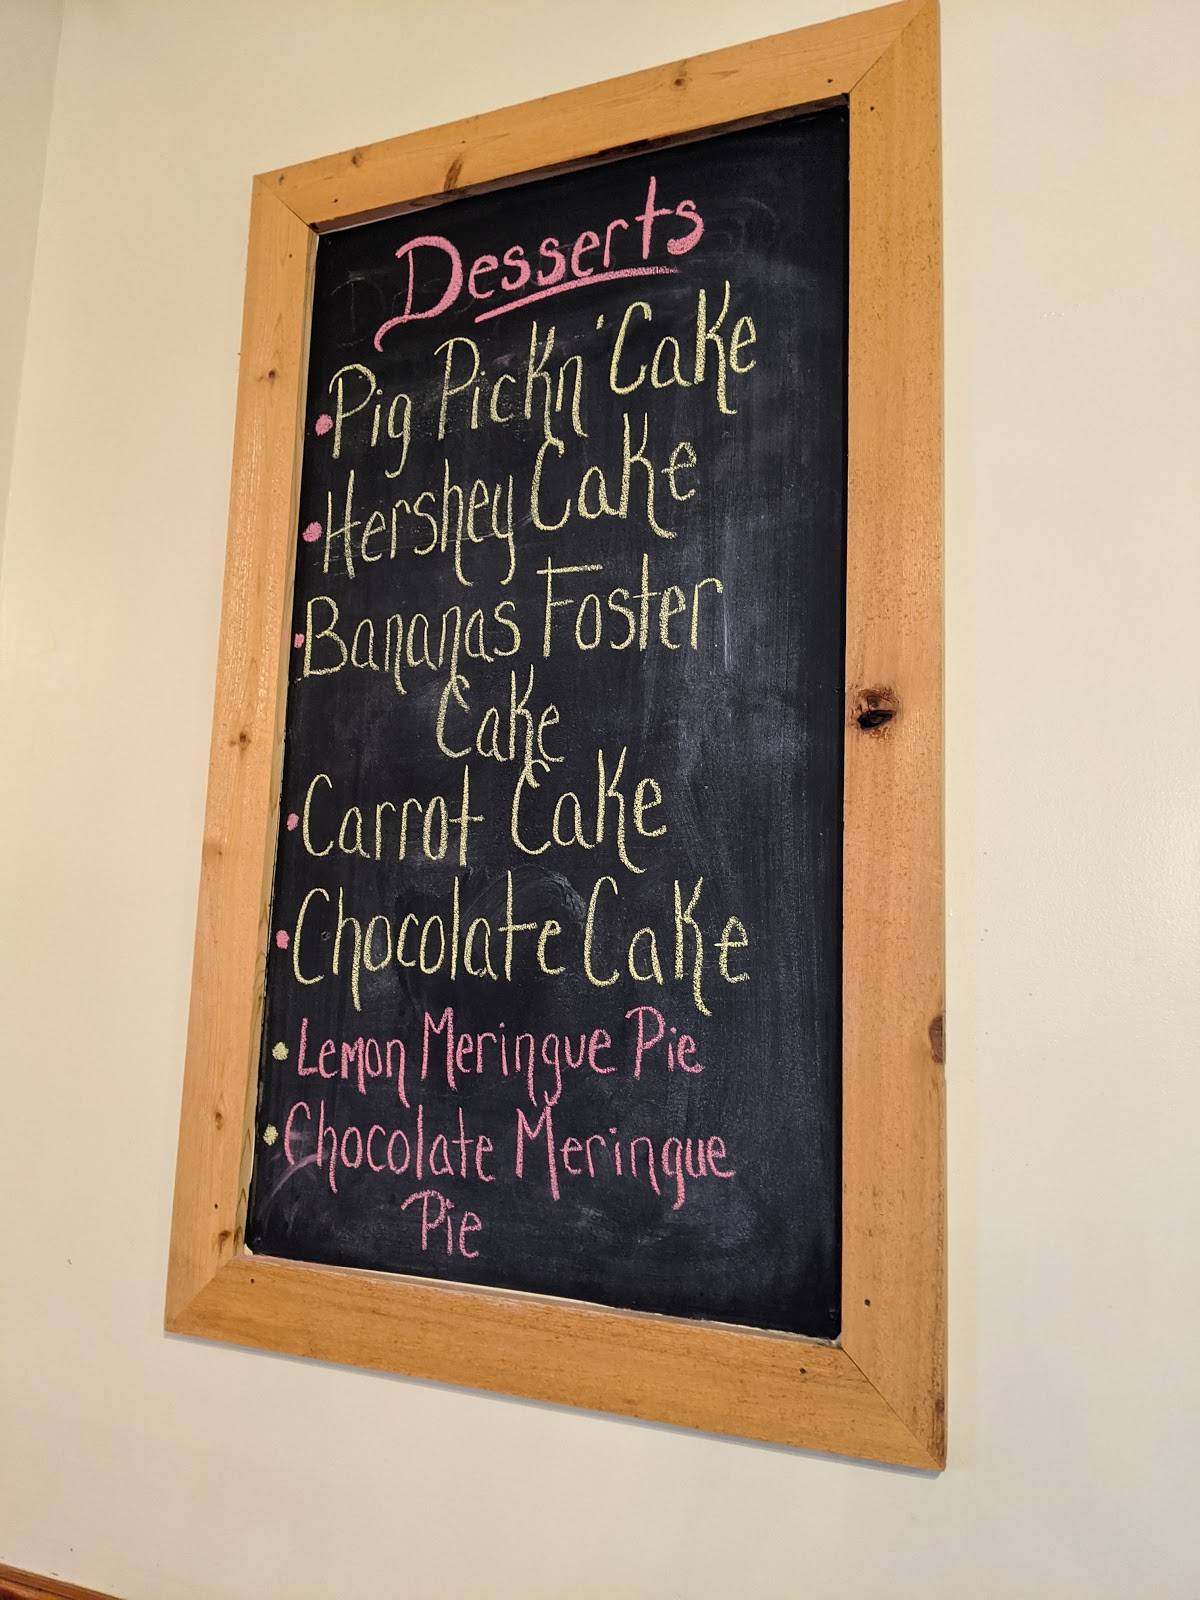 Desserts
• Pig Pickn' Cake
• Hershey Cake
• Bananas Foster
Cake
• Carrot Cake
• Chocolate Cake
• Lemon Meringue Pie
• Chocolate Meringue
Pie